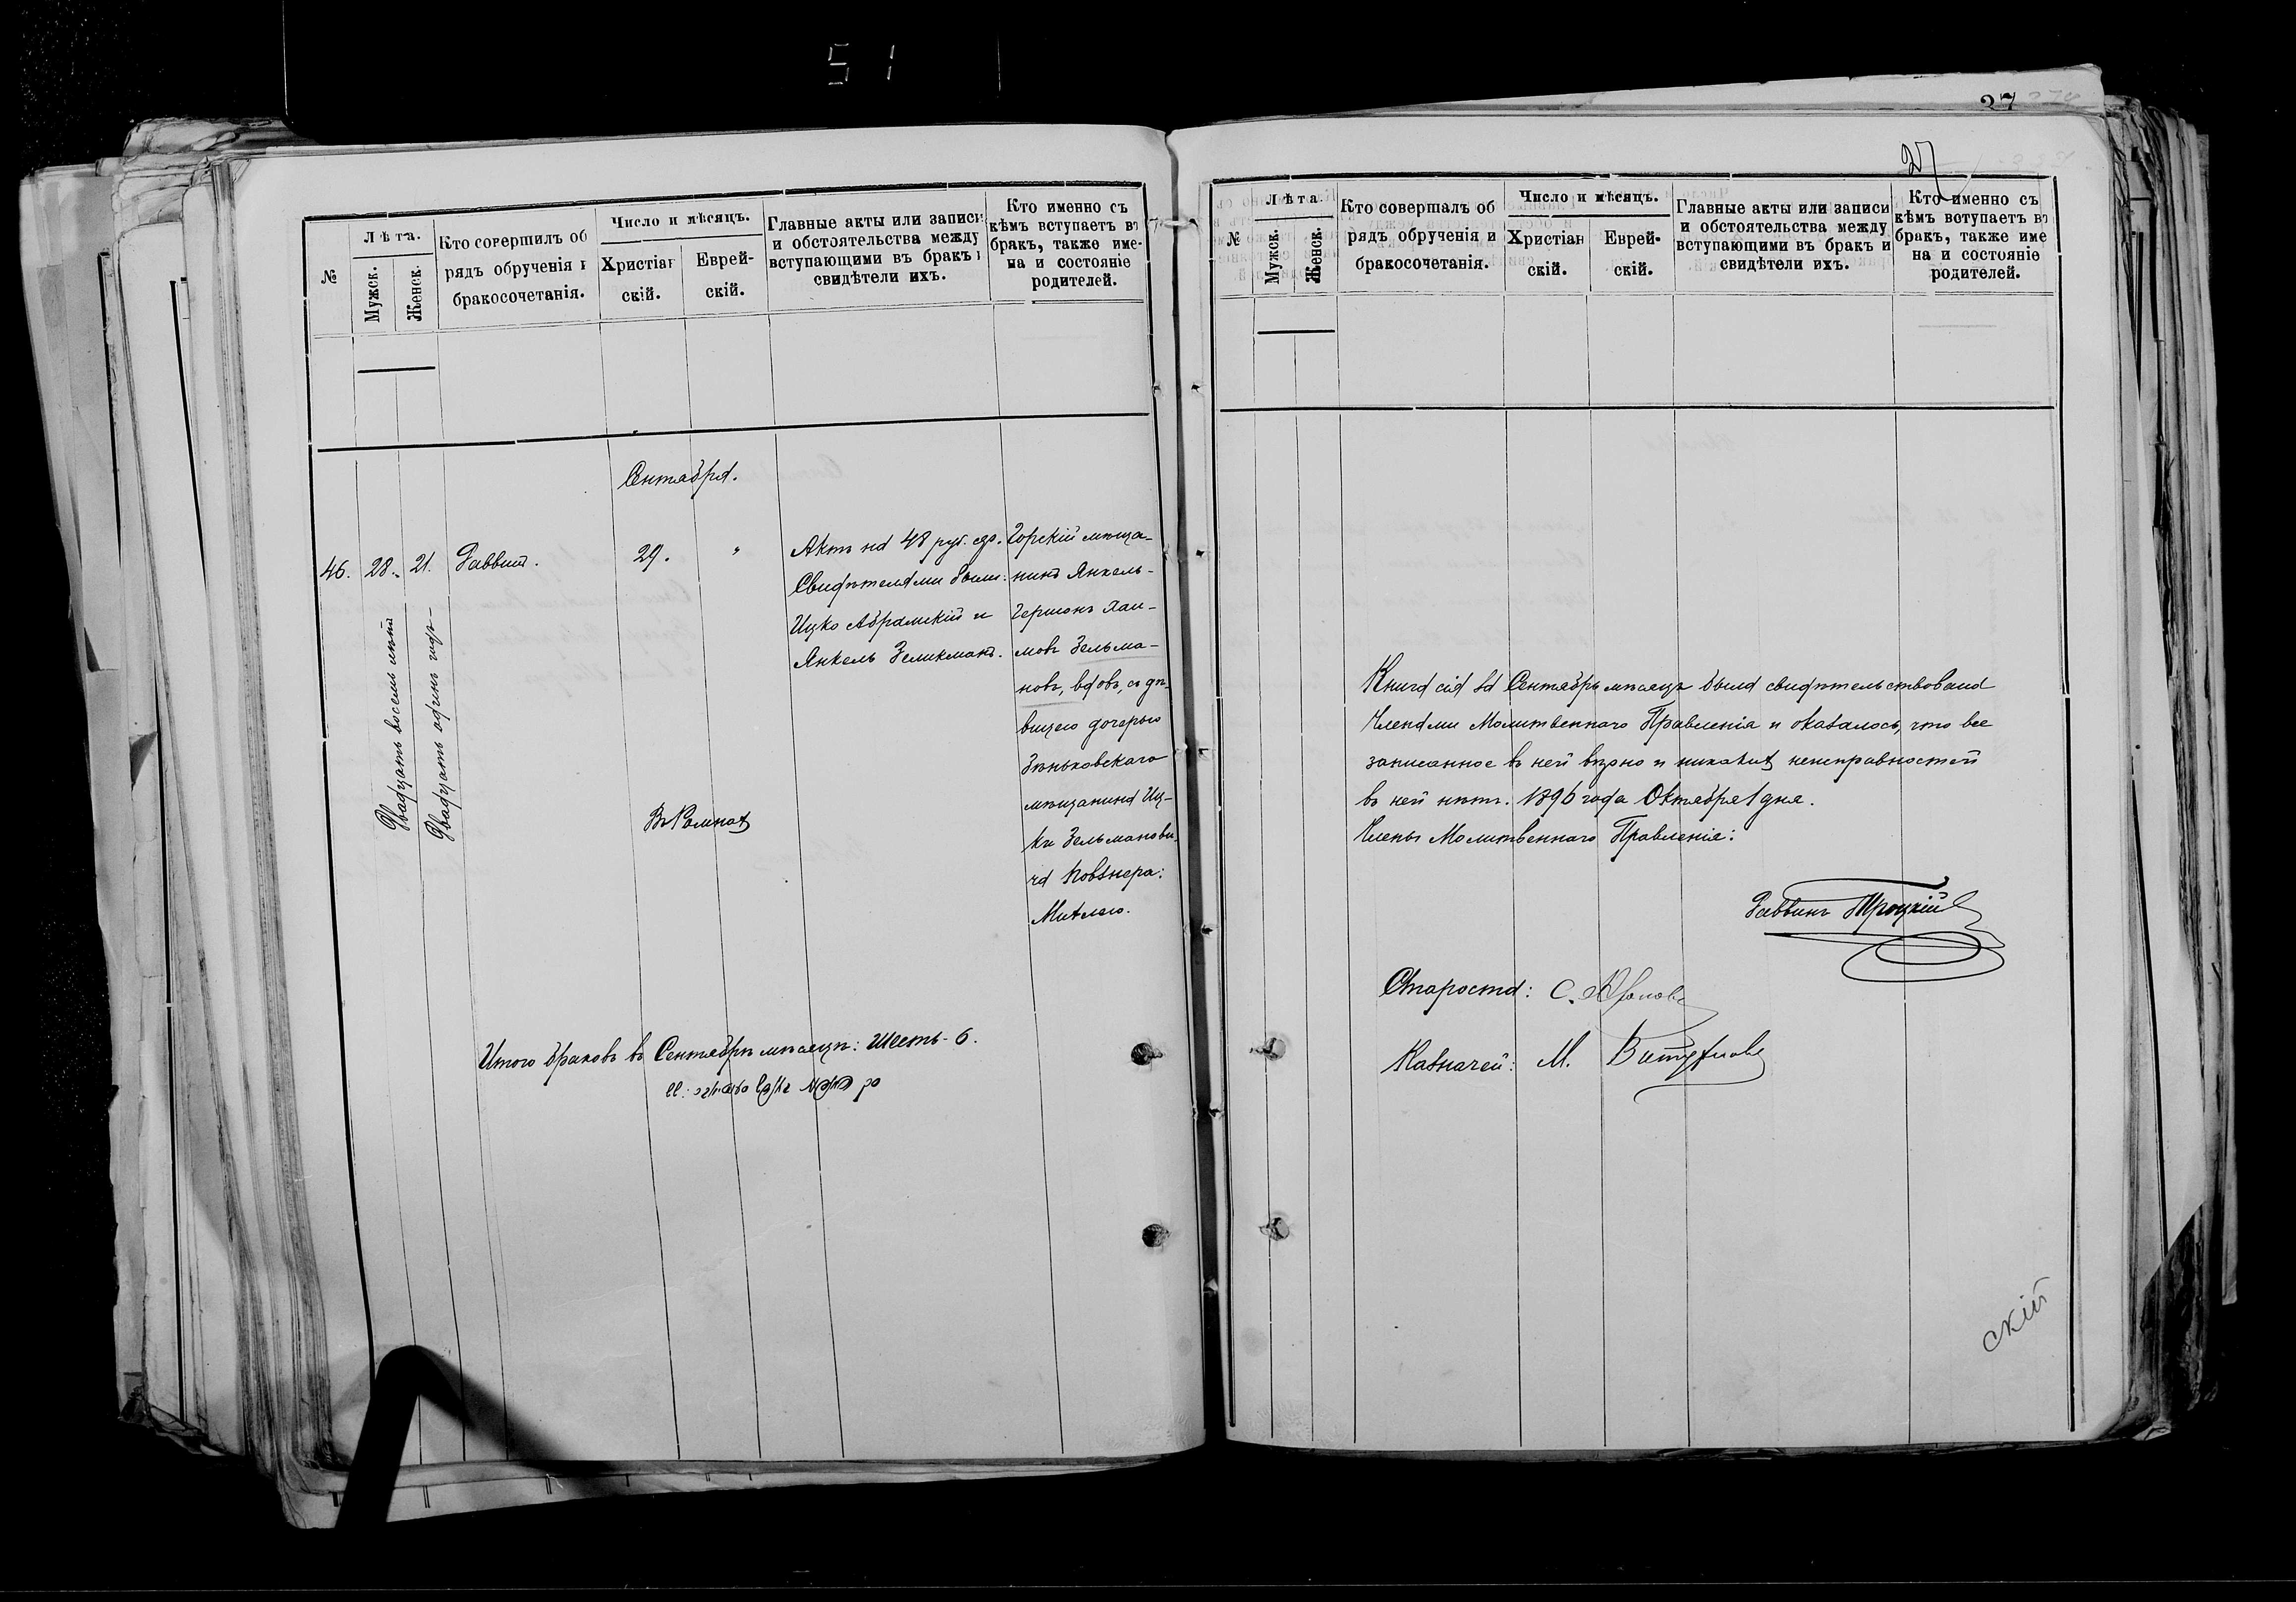 51
27
№
Лѣта.
Мужск.
Женск.
Кто совершилъ об
рядъ обрученія и
бракосочетанія.
Число и мѣсяцъ.
Христіан
скій.
Еврей-
скій.
Главные акты или записи
и обстоятельства между
вступающими въ бракъ и
свидѣтели ихъ.
Кто именно съ
кѣмъ вступаетъ въ
бракъ, также име-
на и состояніе
родителей.
Сентября.
46.
28.
Двадцать восемь лѣтъ
21.
Двадцать одинъ годъ
Раввин.
29.
"
Въ Ромнах
Актъ на 48 руб. сер.
Свидѣтелями были:
Ицко Абрамскій и
Янкель Зеликманъ.
Горскій мѣща-
нинъ Янкель-
Гершонъ Хаи-
мовъ Зельма-
новъ, вдовъ, съ дѣ-
вицею дочерью
Зѣньковскаго
мѣщанина Иц-
ки Зельманови-
ча Ковзнера:
Михлею.
Итого браковъ въ Сентябрѣ мѣсяцѣ: Шесть - 6.
27
№
Лѣта.
Мужск.
Женск.
Кто совершалъ об
рядъ обрученія и
бракосочетанія.
Число и мѣсяцъ.
Христіан
скій.
Еврей-
скій.
Главные акты или записи
и обстоятельства между
вступающими въ бракъ и
свидѣтели ихъ.
Кто именно съ
кѣмъ вступаетъ въ
бракъ, также име
на и состояніе
родителей.
Книга сія за Сентябрь мѣсяцъ была свидѣтельствована
Членами Молитвеннаго Правленія и оказалось, что все
записанное въ ней вѣрно и никаких неисправностей
въ ней нѣтъ. 1896 года Октября 1 дня.
Члены Молитвеннаго Правленія:
Раввинъ Троцкій
Староста: С.
Казначей: М.
скій